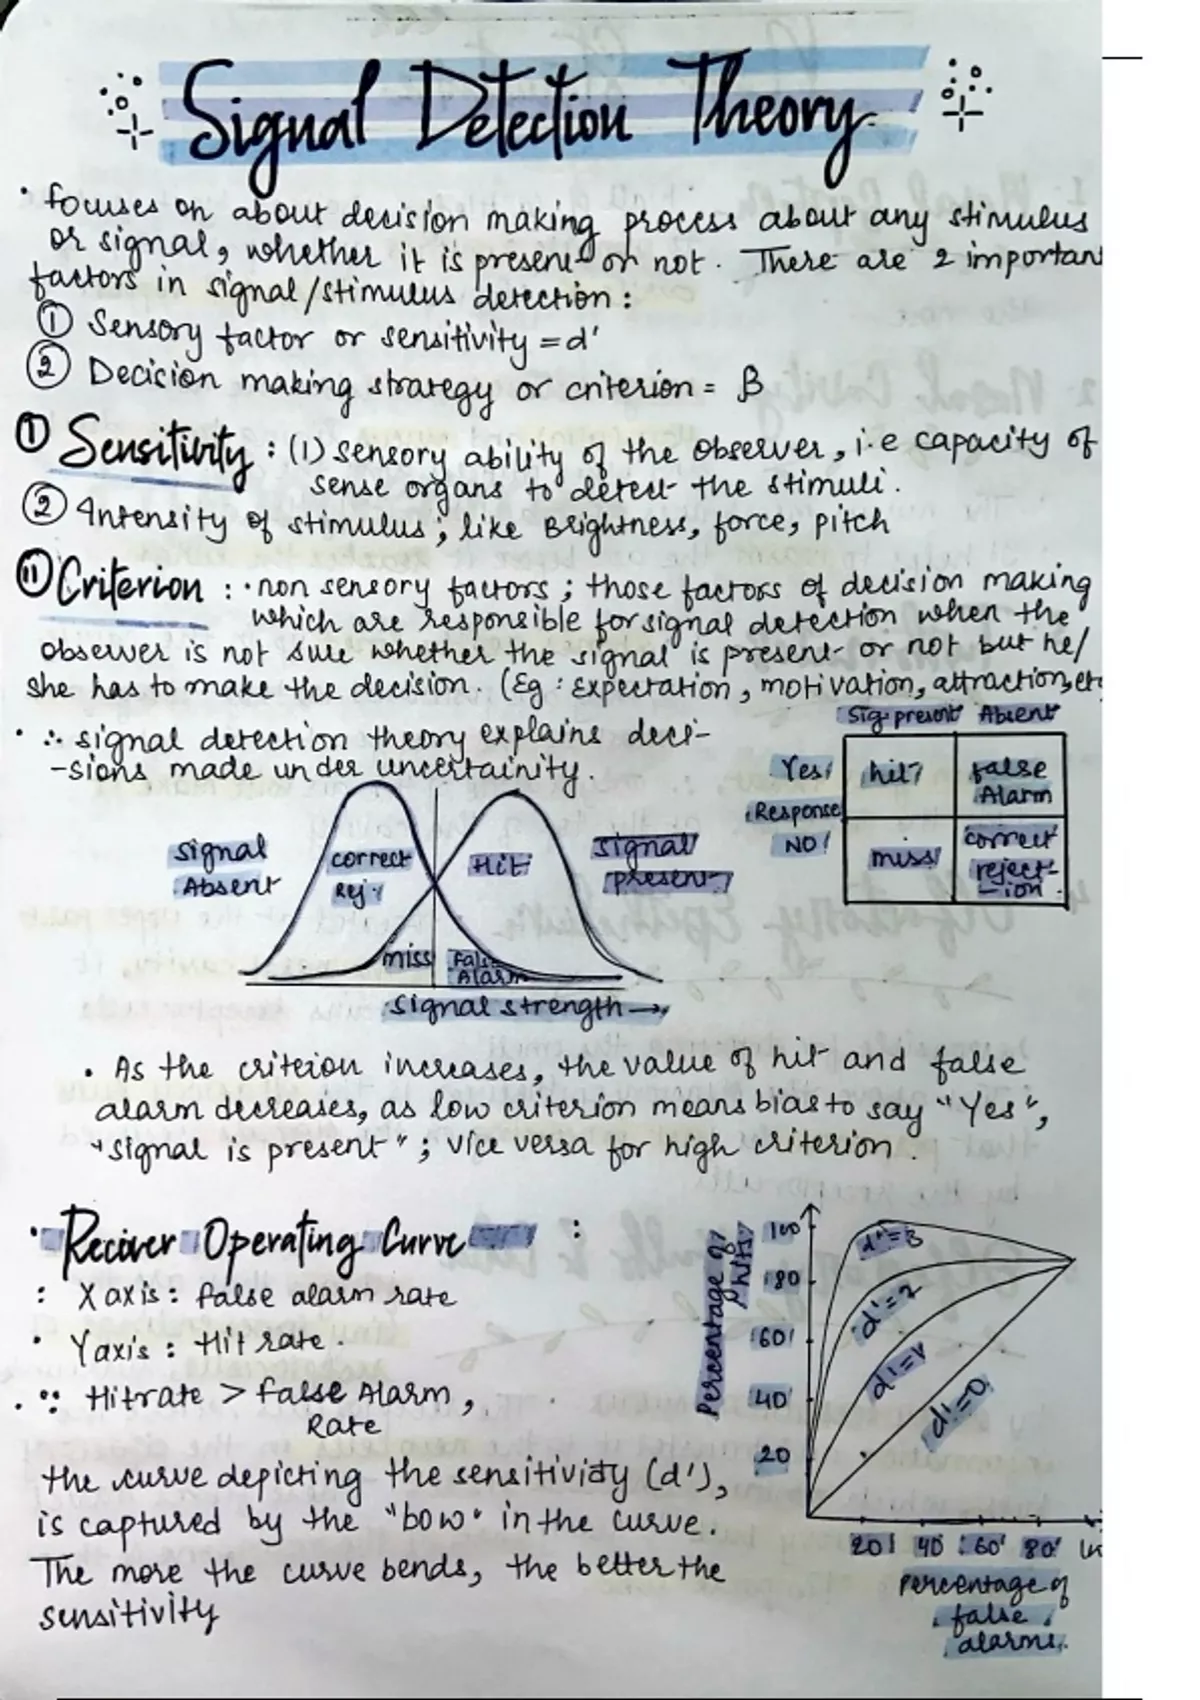 Signal Detection Theory
• focuses on about decision making process about any stimulus
or signal, whether it is present or not. There are 2 important
factors in signal/stimulus detection :
① Sensory factor or sensitivity = d'
② Decision making strategy or criterion = β
① Sensitivity : (1) sensory ability of the observer, i.e capacity of
sense organs to detect the stimuli.
② Intensity of stimulus; like Brightness, force, pitch
⑪ Criterion : • non sensory factors ; those factors of decision making
which are responsible for signal detection when the
observer is not sure whether the signal is present or not but he/
she has to make the decision. (Eg : Expectation, motivation, attraction, etc
• ∴ signal detection theory explains deci-
-sions made under uncertainity.
Sig. present Absent
Yes
hit
false
Alarm
Response
NO
miss
correct
reject-
-ion
signal
Absent
correct
Rej.
Hit
signal
present
miss
False
Alarm
signal strength →
• As the criteion increases, the value of hit and false
alarm decreases, as low criterion means bias to say "Yes",
"signal is present" ; vice versa for high criterion.
• Reciever Operating Curve :
: X axis : false alarm rate
• Y axis : Hit rate.
• ∵ Hitrate > false Alarm,
Rate
the curve depicting the sensitividy (d'),
is captured by the "bow" in the curve.
The more the curve bends, the better the
sensitivity
Percentage of
hits
100
80
60
40
20
d'=3
d'=2
d'=1
d'=0
20 40 60 80
Percentage of
false
alarms.